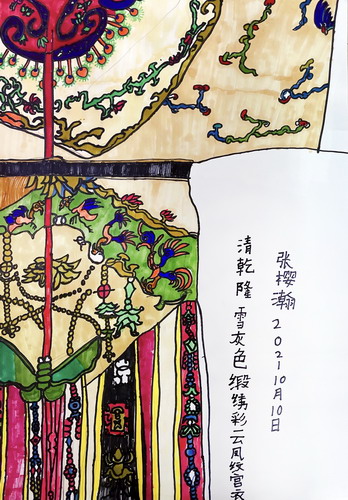 清乾隆雪灰色缎绣彩云凤纹宫衣
张樱瀚202110月10日